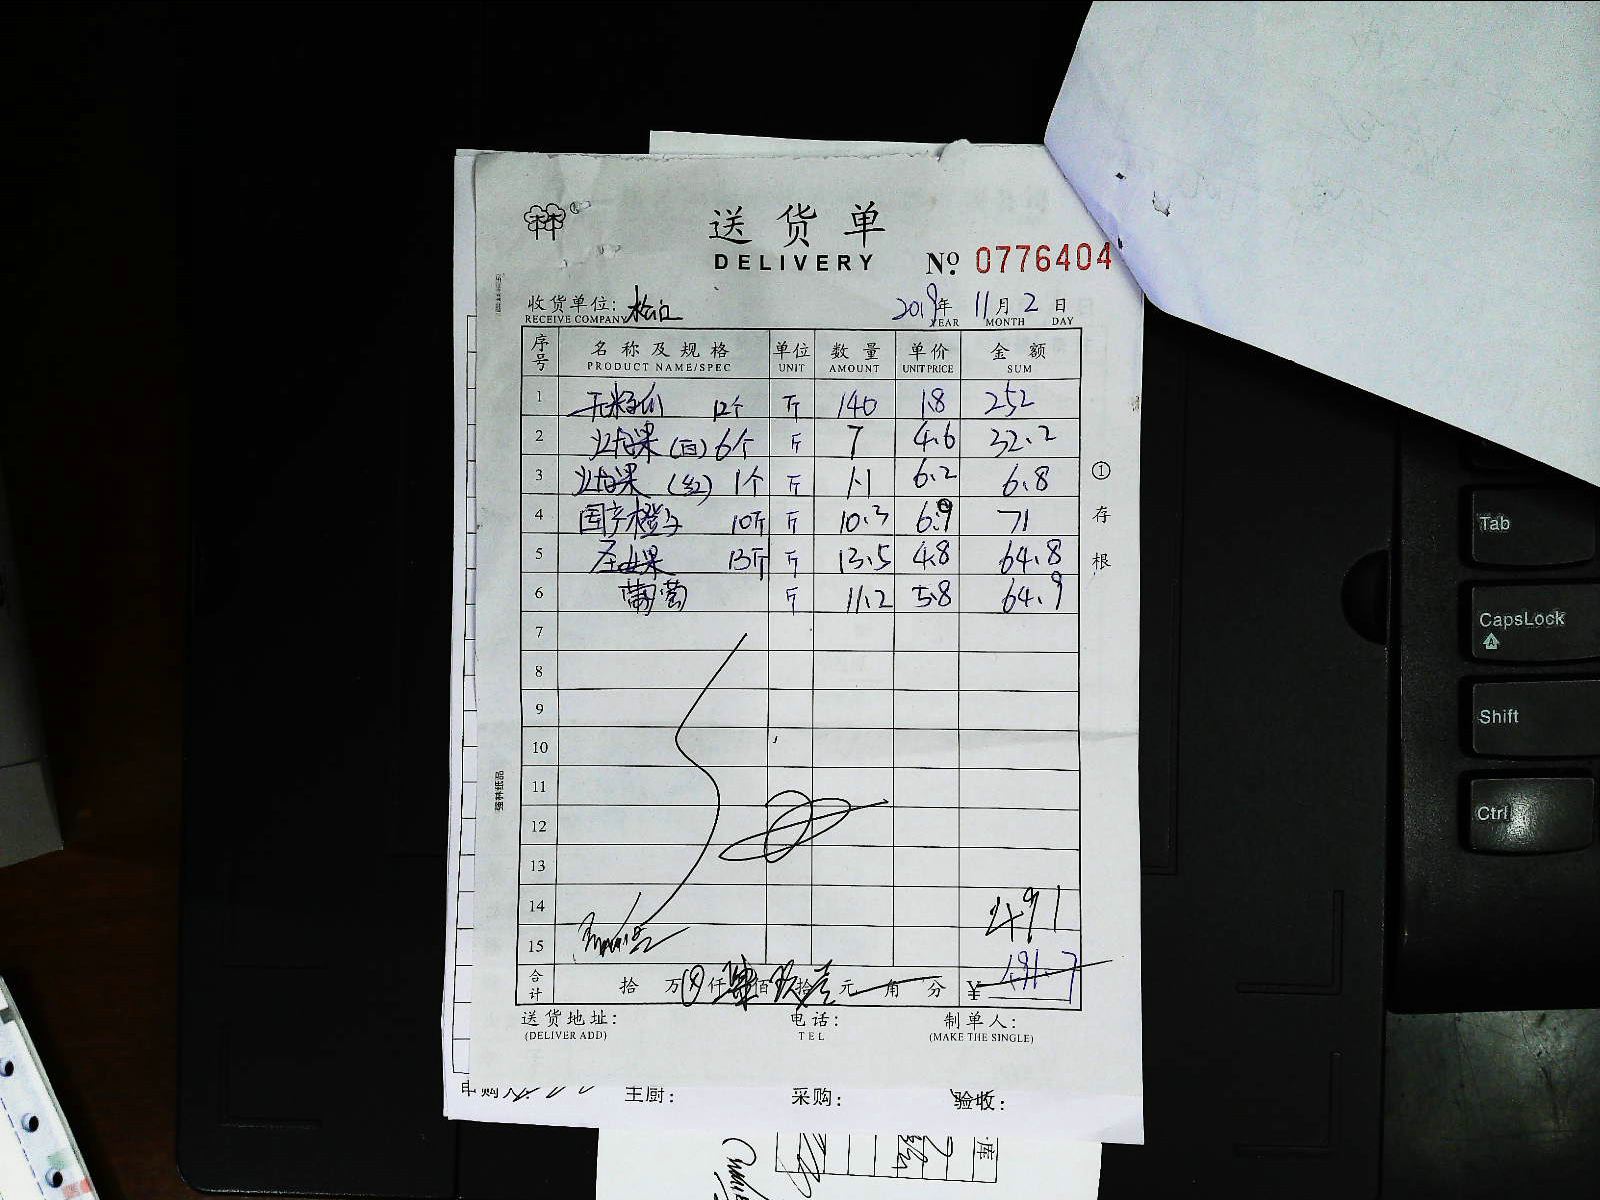 送货单
DELIVERY No. 0776404
收货单位: 松江 2019年 11月 2日
RECEIVE COMPANY YEAR MONTH DAY
序号 名称及规格 单位 数量 单价 金额
PRODUCT NAME/SPEC UNIT AMOUNT UNIT PRICE SUM
1 无籽瓜 12个 斤 140 1.8 252
2 火龙果(白)6个 斤 7 4.6 32.2
3 火龙果(红)1个 斤 1.1 6.2 6.8
4 国产橙子 10斤 斤 10.3 6.9 71
5 圣女果 13斤 斤 13.5 4.8 64.8
6 葡萄 斤 11.2 5.8 64.9
7
8
9
10
11
12
13
14 491
15
合计 拾 万 仟 肆佰 玖拾 壹元 角 分 ¥ 491.7
送货地址: 电话: 制单人:
(DELIVER ADD) TEL (MAKE THE SINGLE)
① 存根
强林纸品
申购人 主厨: 采购: 验收:
库
Tab
CapsLock
A
Shift
Ctrl